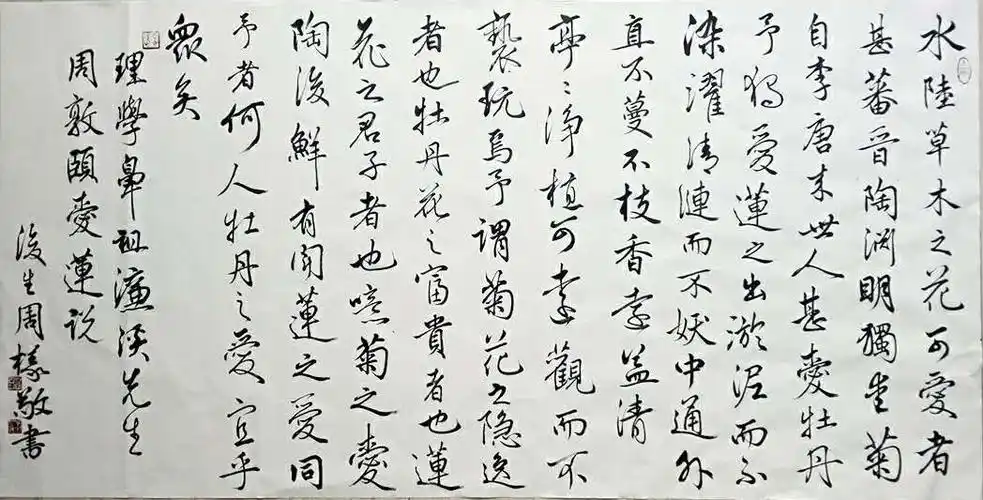 水陸草木之花可愛者
甚蕃晋陶渊明獨爱菊
自李唐来世人甚愛牡丹
予独愛蓮之出淤泥而不
染濯清漣而不妖中通外
直不蔓不枝香遠益清
亭〻淨植可遠觀而不
褻玩焉予謂菊花之隐逸
者也牡丹花之富貴者也蓮
花之君子者也噫菊之愛
陶後鮮有聞蓮之愛同
予者何人牡丹之愛宜乎
眾矣
理學鼻祖濂溪先生
周敦頤愛蓮説
後生周樣敬書